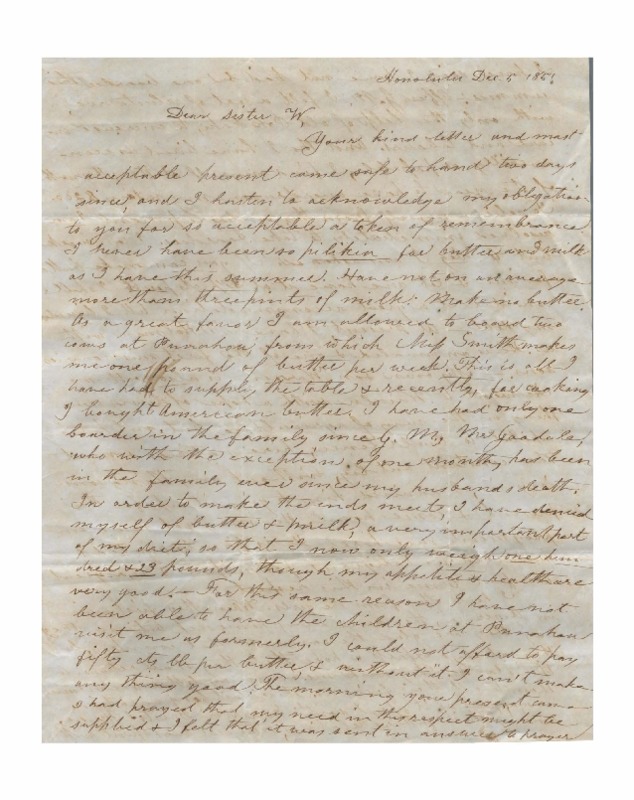 Honolulu Dec 5 185
Dear Sister W,
Your kind letter and most
acceptable present came safe to hand two days
since, and I hasten to acknowledge my obligation
to you for so acceptable a token of remembrance
I never have been so pilikia for butter and milk
as I have this summer. Have not on an average
more than three pints of milk: Make no butter.
As a great favor I am allowed to board two
cows at Punahou, from which Miss Smith makes
me one pound of butter per week. This is all I
have had to supply the table & recently, for cooking
I bought American butter. I have had only one
boarder in the family since G. M, Mr Goodale,
who with the exception of one month, has been
in the family ever since my husbands death.
In order to make the ends meet, I have denied
myself of butter & milk, a very important part
of my diet, so that I now only weigh one hun-
dred & 23 pounds, though my appetite & health are
very good. – For this same reason I have not
been able to have the children at Punahou
visit me as formerly. I could not afford to pay
fifty cts lb per butter, & without it I can't make
any thing good. The morning your present came
I had prayed that my need in this respect might be
supplied & I felt that it was sent in answer to prayer